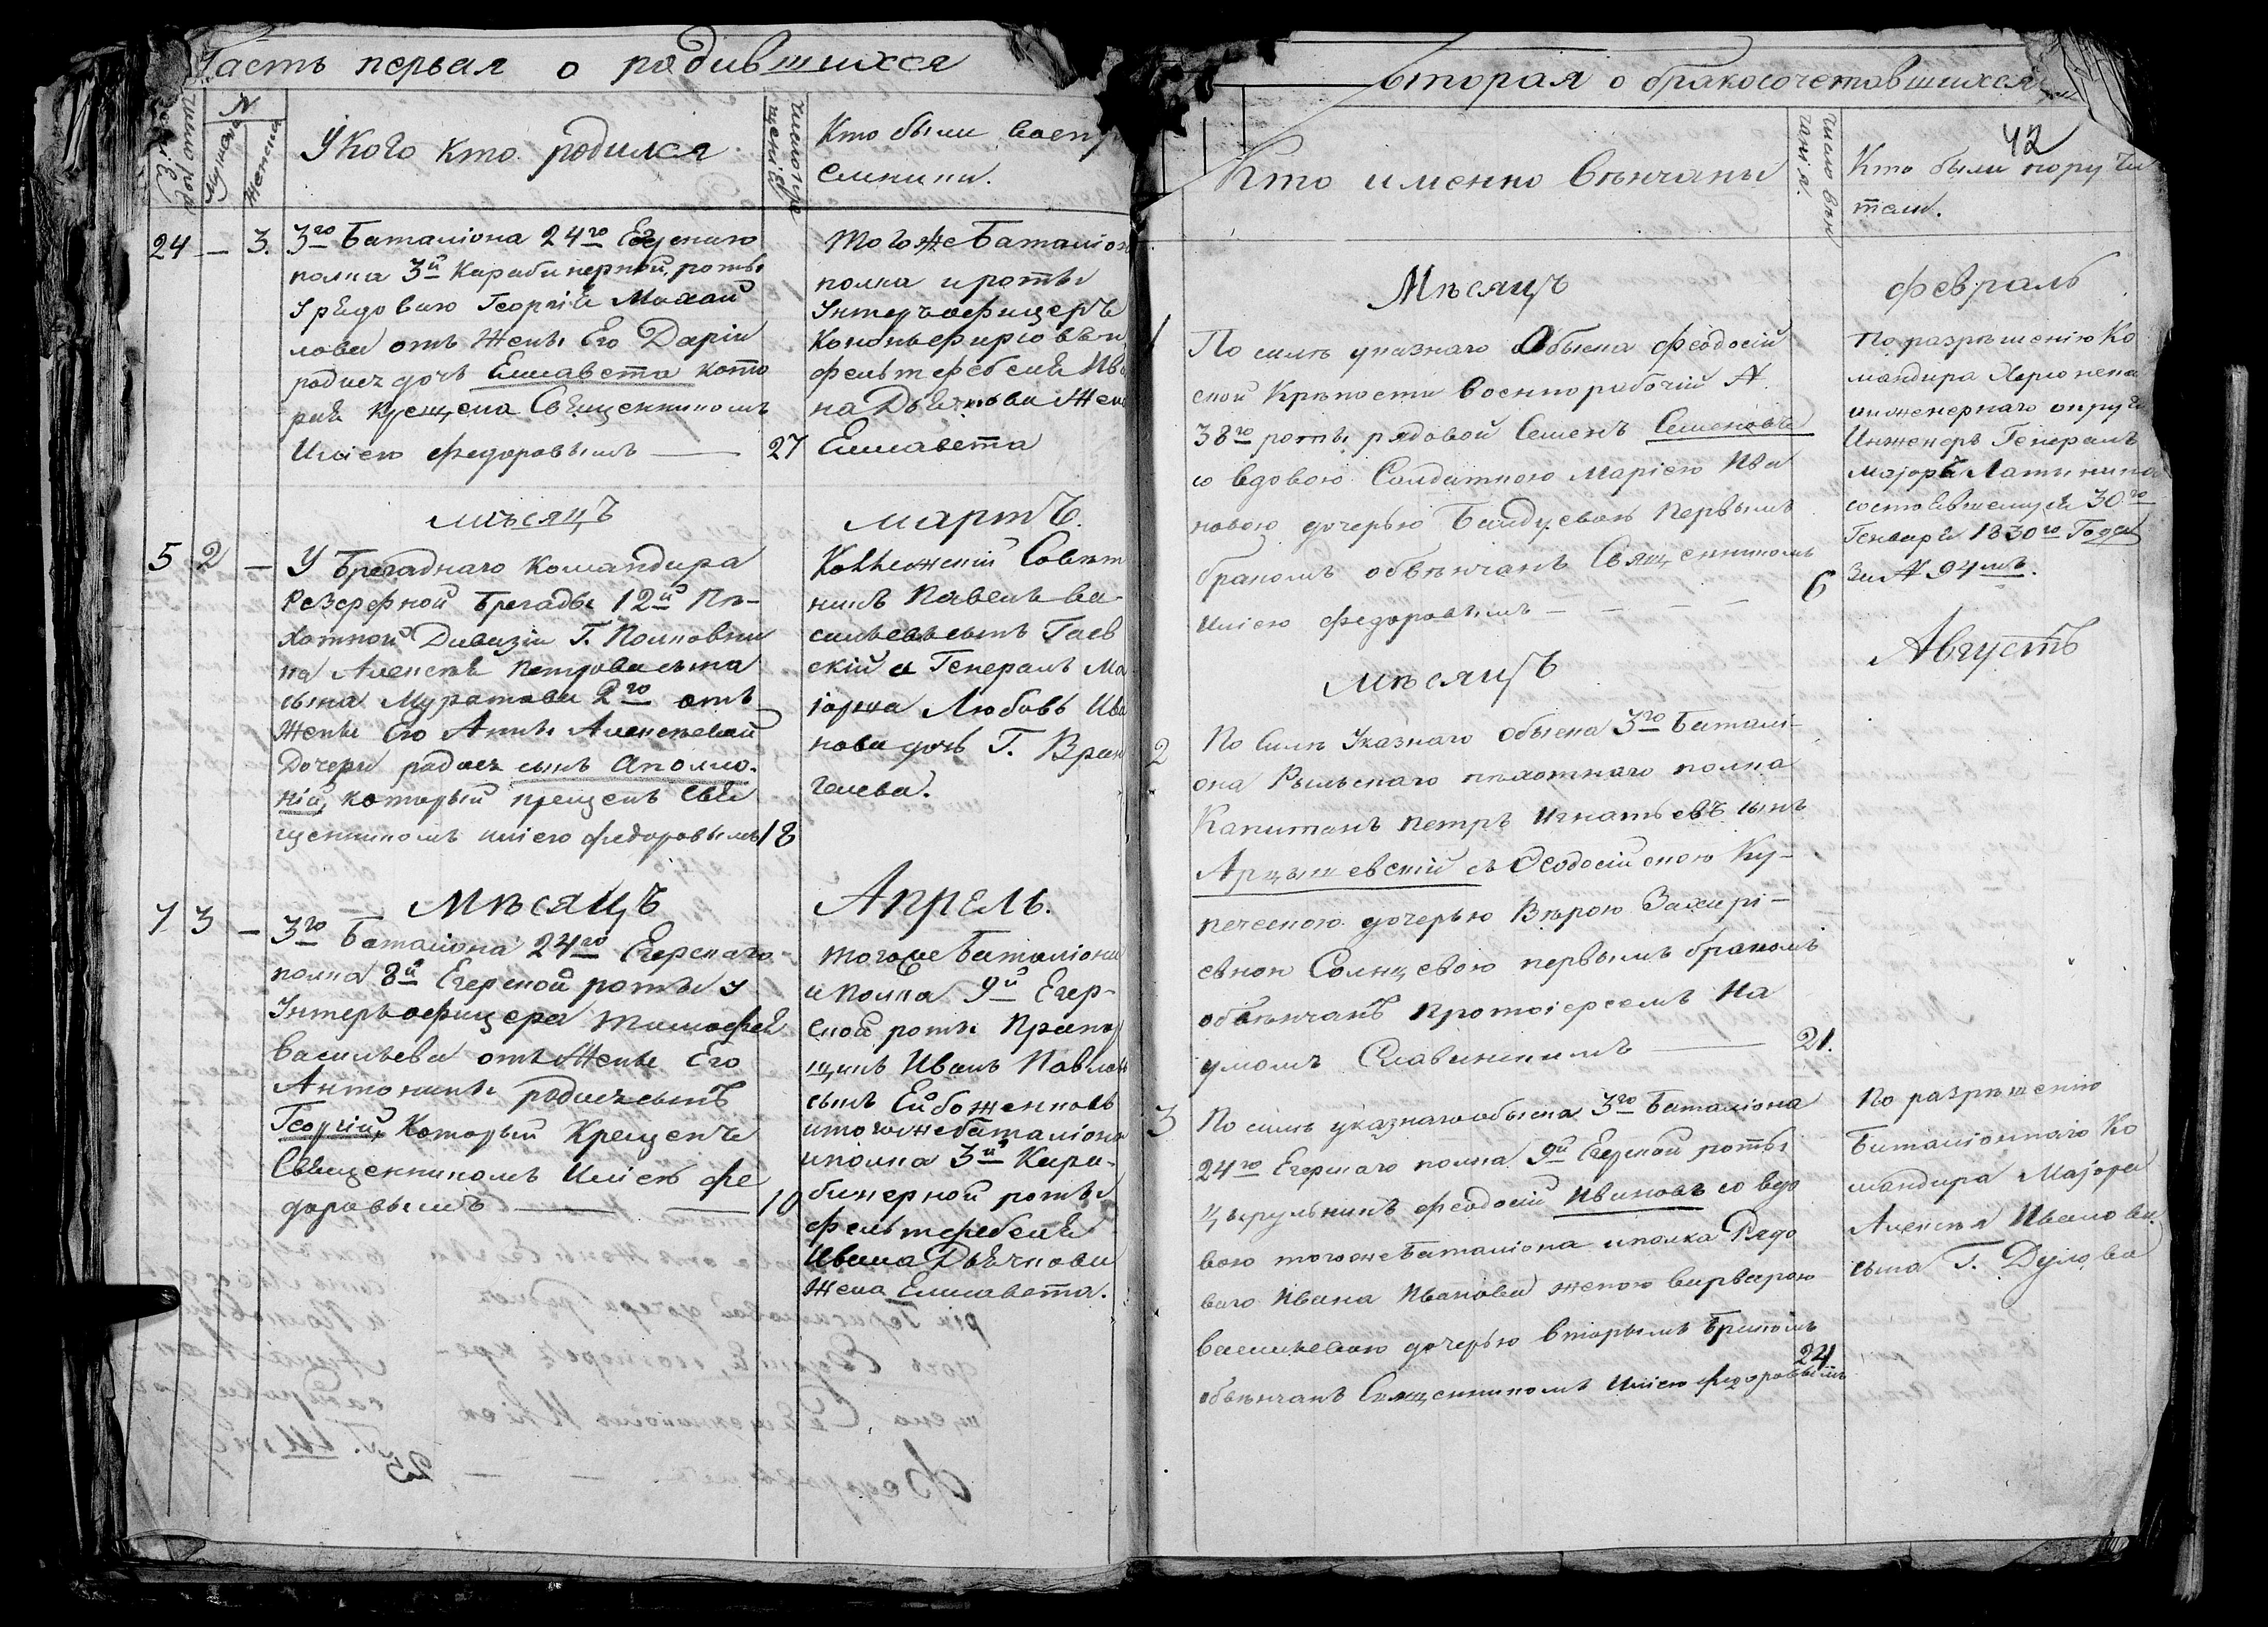 Часть первая о родившихся
Число рожденія
N
Мужеска
Женска
У кого кто родился
Число крещенія
Кто были воспр
емники.
24 — 3.
3го Баталіона 24го Егерскаго
полка 3й Карабинерной роты
У рядоваго Георгія Михай
лова отъ Жены Его Даріи
родися дочь Елисавета кото
рая крещена Священникомъ
Иліею Федоровымъ — 27
того же Баталіон
полка и роты
Унтеръ офицеръ
фельтфебеля Ива
на Дьячкова Жена
Елисавета
мѣсяцъ мартъ.
5 2 —
У Бregаднаго Командира
Резерфной Брегады 12й Пѣ-
хотной Дивизіи Г. Полковни
ка Алексѣя Петрова сына
сына Муратова 2го отъ
Жены Его Анны Алексѣевой
Дочери родися сынъ Аполло-
ній, который крещенъ Свя
щенникомъ Иліею Федоровымъ 18
Коллежскій Совѣт
никъ Павелъ Ва-
сильевъ сынъ Гаев
скій и Генералъ Ма
іорша Любовь Ива
нова дочь Г. Вран
гелева.
Мѣсяцъ Апрель.
7 3 —
3го Баталіона 24го Егерскаго
полка 8й Егерской роты У
Унтеръ офицера Тимофея
Васильева отъ Жены Его
Антонины родися сынъ
Георгій, Который Крещенъ
Священникомъ Иліею Фе
доровымъ — — 10
того же Баталіона
и полка 9й Егер-
ской роты Прапор
щикъ Иванъ Павловъ
сынъ Ейбоженковъ
и того же баталіона
и полка 3й Кара-
бинерной роты
фельтфебеля
Ивана Дьячкова
Жена Елисавета.
вторая о бракосочетавшихся
42
Кто именно вѣнчаны
Число вѣнчанія.
Кто были поручи
тели.
Мѣсяцъ Февраль
1
По силѣ указнаго Обыска Феодосій
ской Крѣпости военнорабочій N.
38го роты рядовой Семенъ Семеновъ
со вдовою Солдаткою Маріею Ива
новою дочерью Бандусвою Первымъ
бракомъ обвѣнчанъ Священникомъ
Иліею Федоровымъ — — — — 6
По разрѣшенію Ко
мандира Херсонска
инженернаго округа
Инженеръ Генералъ
маіора Латынина
состоявшемуся 30го
Генваря 1830го Года
За N 94мъ.
мѣсяцъ Августъ
2
По Силѣ Указнаго обыска 3го Баталі-
она Рыльскаго пѣхотнаго полка
Капитанъ Петръ Игнатьевъ сынъ
Арцышевскій съ Феодосійскою Ку-
печескою дочерью Вѣрою Захарі-
евною Солнцевою первымъ бракомъ
обвѣнчанъ Протоіереемъ На
умомъ Славинскимъ — 21.
3
По силѣ указнаго обыска 3го Баталіона
24го Егерскаго полка 9й Егерской роты
Цырульникъ Феодосій Ивановъ со вдо
вою того же Баталіона и полка Рядо
ваго Ивана Иванова женою Варварою
Васильевою дочерью вторымъ бракомъ
обвѣнчанъ Священникомъ Иліею Федоровымъ 24
По разрѣшенію
Баталіоннаго Ко
мандира Маіора
Алексѣя Иванова
сына Г. Дулова